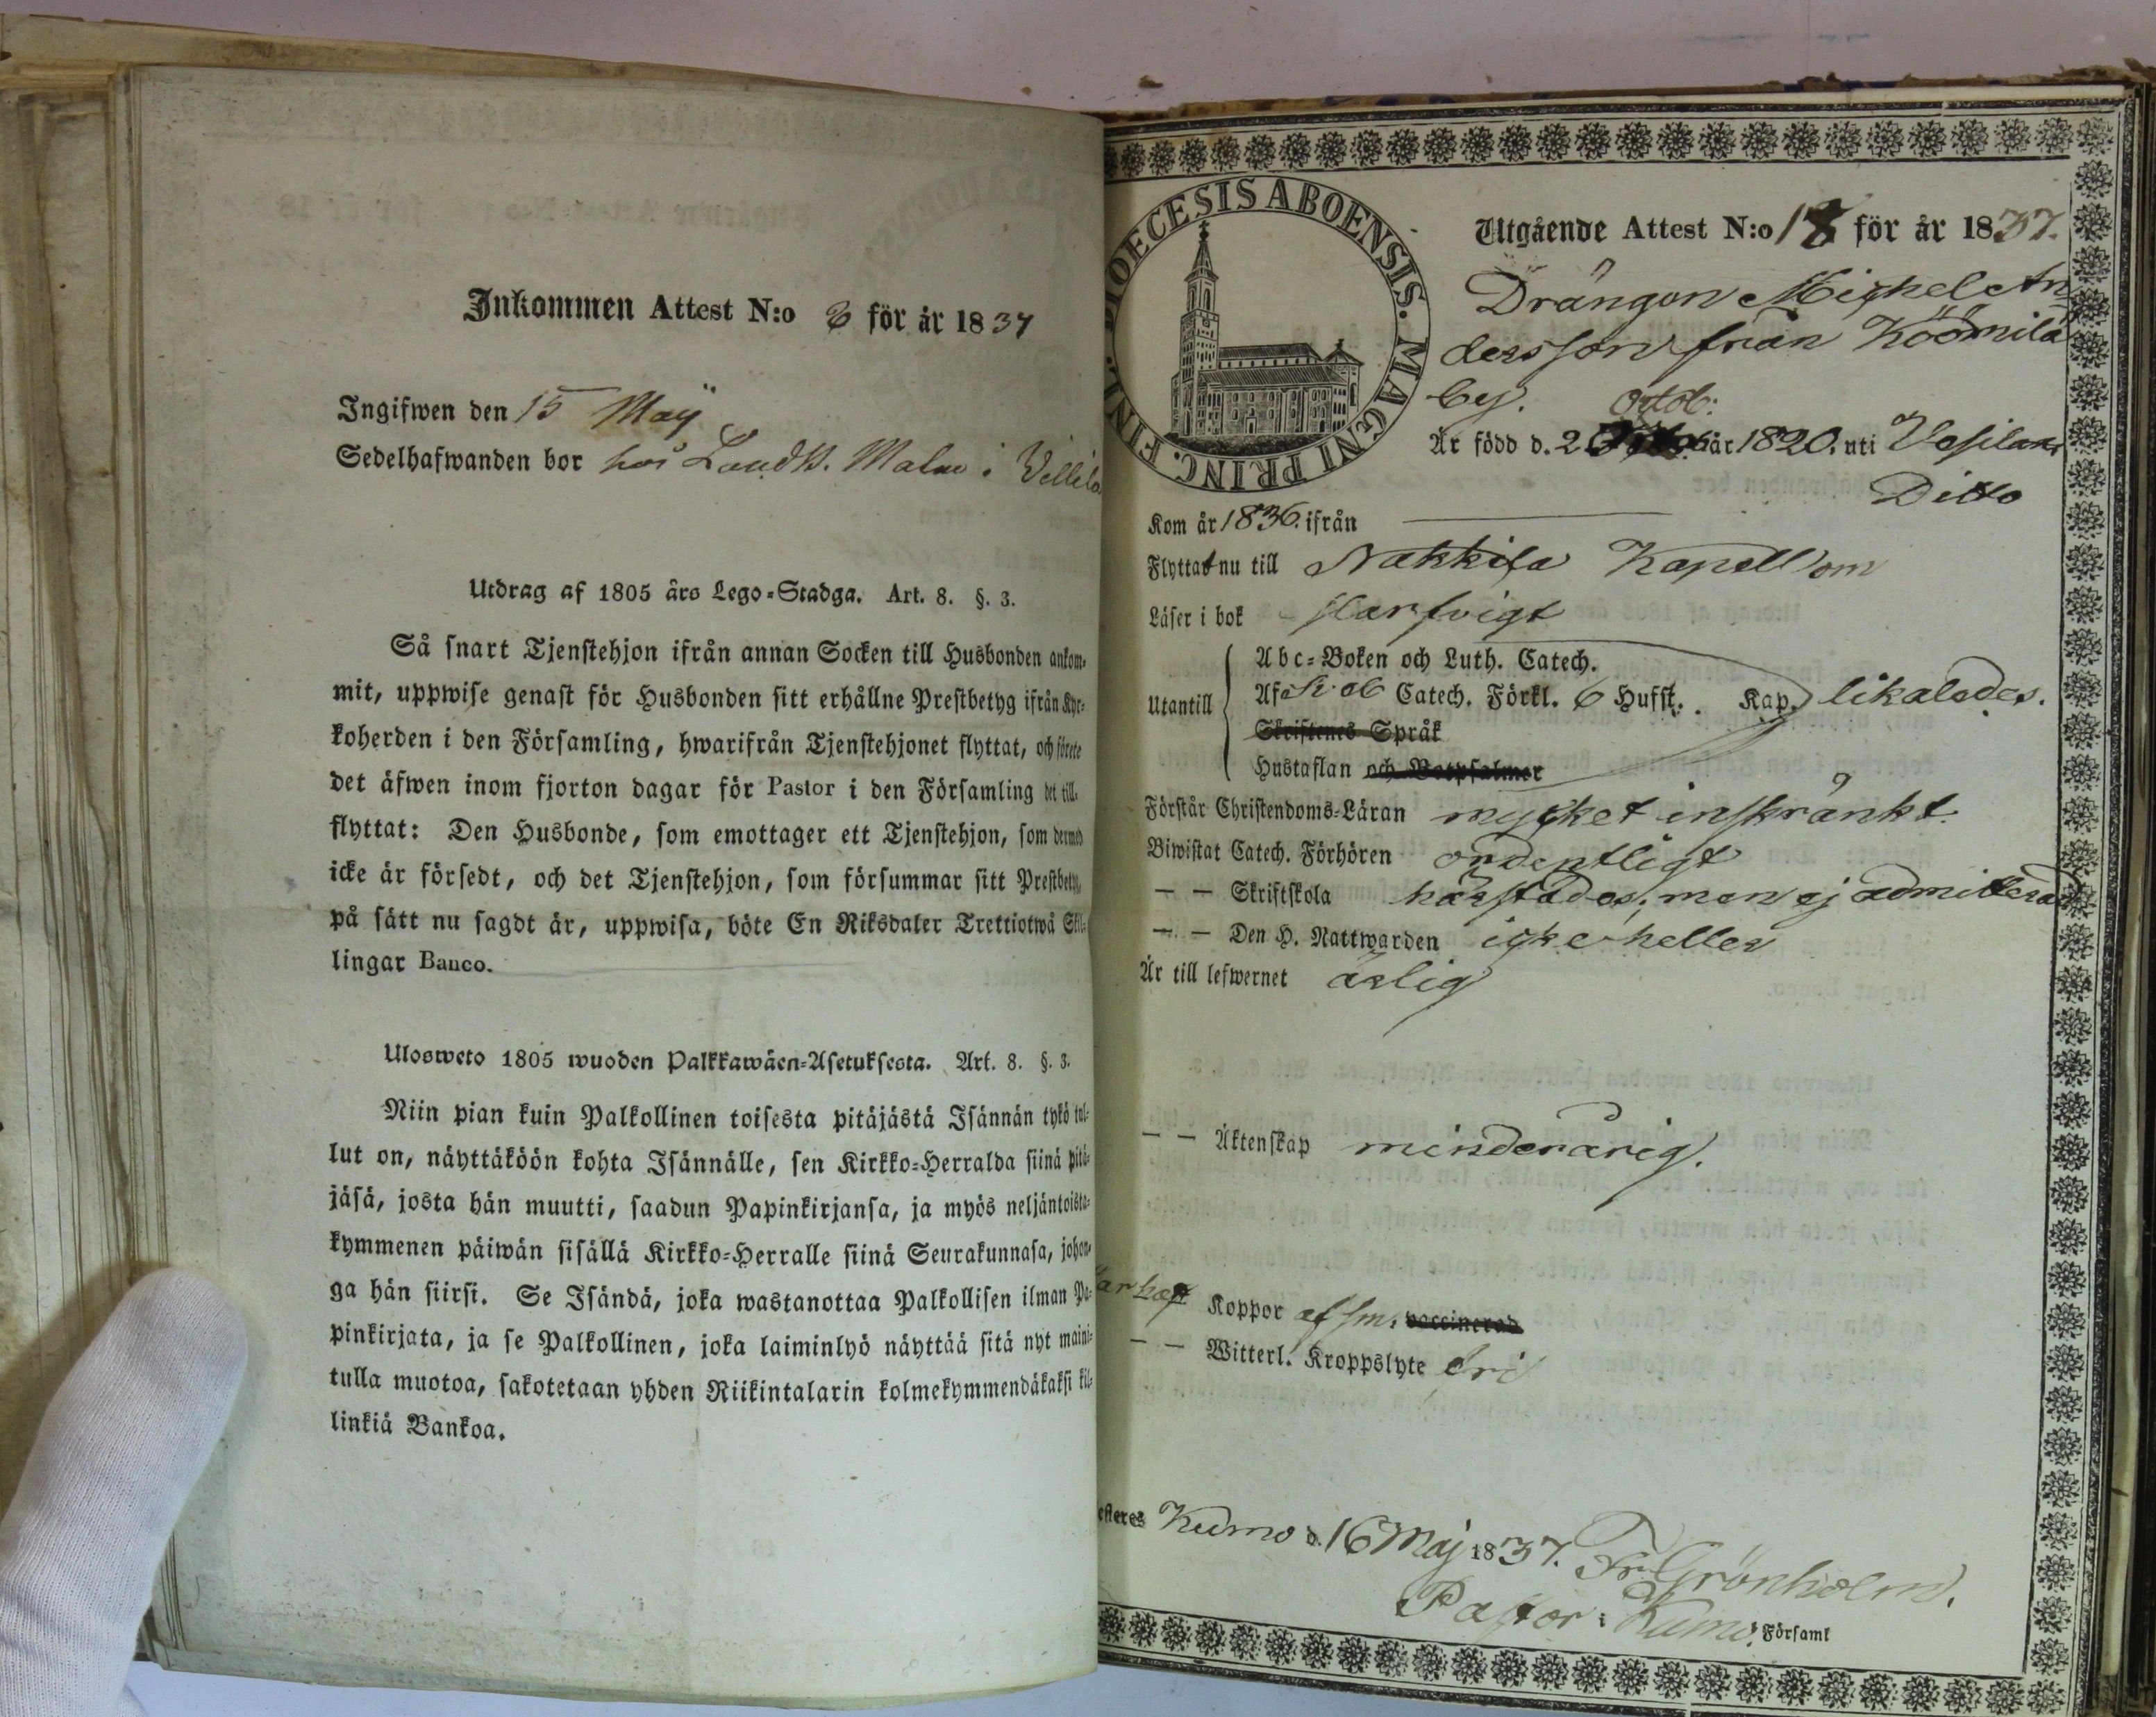 Inkommen Attest N:o 3 för år 1837
Ingifwen den 15 Maÿ
Sedelhafwanden bor hos Landtk. Malm i Villilä
Utdrag af 1805 års Lego-Stadga. Art. 8. §. 3.
Så snart Tjenstehjon ifrån annan Socken till Husbonden ankom-
mit, uppwise genast för Husbonden sitt erhållne Prestbetyg ifrån Kyr-
koherden i den Församling, hwarifrån Tjenstehjonet flyttat, och förete
det äfwen inom fjorton dagar för Pastor i den Församling det till-
flyttat: Den Husbonde, som emottager ett Tjenstehjon, som dermed
icke är försedt, och det Tjenstehjon, som försummar sitt Prestbetyg,
på sätt nu sagdt är, uppwisa, böte En Riksdaler Trettiotwå Skil-
lingar Banco.
Ulosweto 1805 wuoden Palkkawäen-Asetuksesta. Art. 8. §. 3.
Niin pian kuin Palkollinen toisesta pitäjästä Isännän tykö tul-
lut on, näyttäköön kohta Isännälle, sen Kirkko-Herralda siinä pitä-
jäsä, josta hän muutti, saadun Papinkirjansa, ja myös neljäntoista-
kymmenen päiwän sisällä Kirkko-Herralle siinä Seurakunnasa, johon-
ga hän siirsi. Se Isändä, joka wastanottaa Palkollisen ilman Pa-
pinkirjata, ja se Palkollinen, joka laiminlyö näyttää sitä nyt maini-
tulla muotoa, sakotetaan yhden Riikintalarin kolmekymmendäkaksi kil-
linkiä Bankoa.
DIOECESIS ABOENSIS. MAGNI PRINC. FINL.
Utgående Attest N:o 18 för år 1837.
Drängen Michel An
dersson från Köömilä
by. Octob:
Är född d. 2 år 1820. uti Vesilax
Ditto
Kom år 1836. ifrån
Flyttat nu till Nakkila Kapell som
Läser i bok
Abc-Boken och Luth. Catech.
Utantill Catech. Förkl. 6 Hufst. Kap. likaledes.
Skriftenes Språk
Hustaflan och Botpsalmer
Förstår Christendoms-Läran mycket inskränkt.
Biwistat Catech. Förhören ordentligt
— — Skriftskola härstädes, men ej admitterad
— — Den H. Nattwarden icke heller
Är till lefwernet ärlig
— — Äktenskap minderårig.
har haft Koppor vaccinerad
— — Witterl. Kroppslyte fri
esteres Kumo d. 16 Maj 1837. Fr. Grönholm.
Pastor i Kumo. Församl